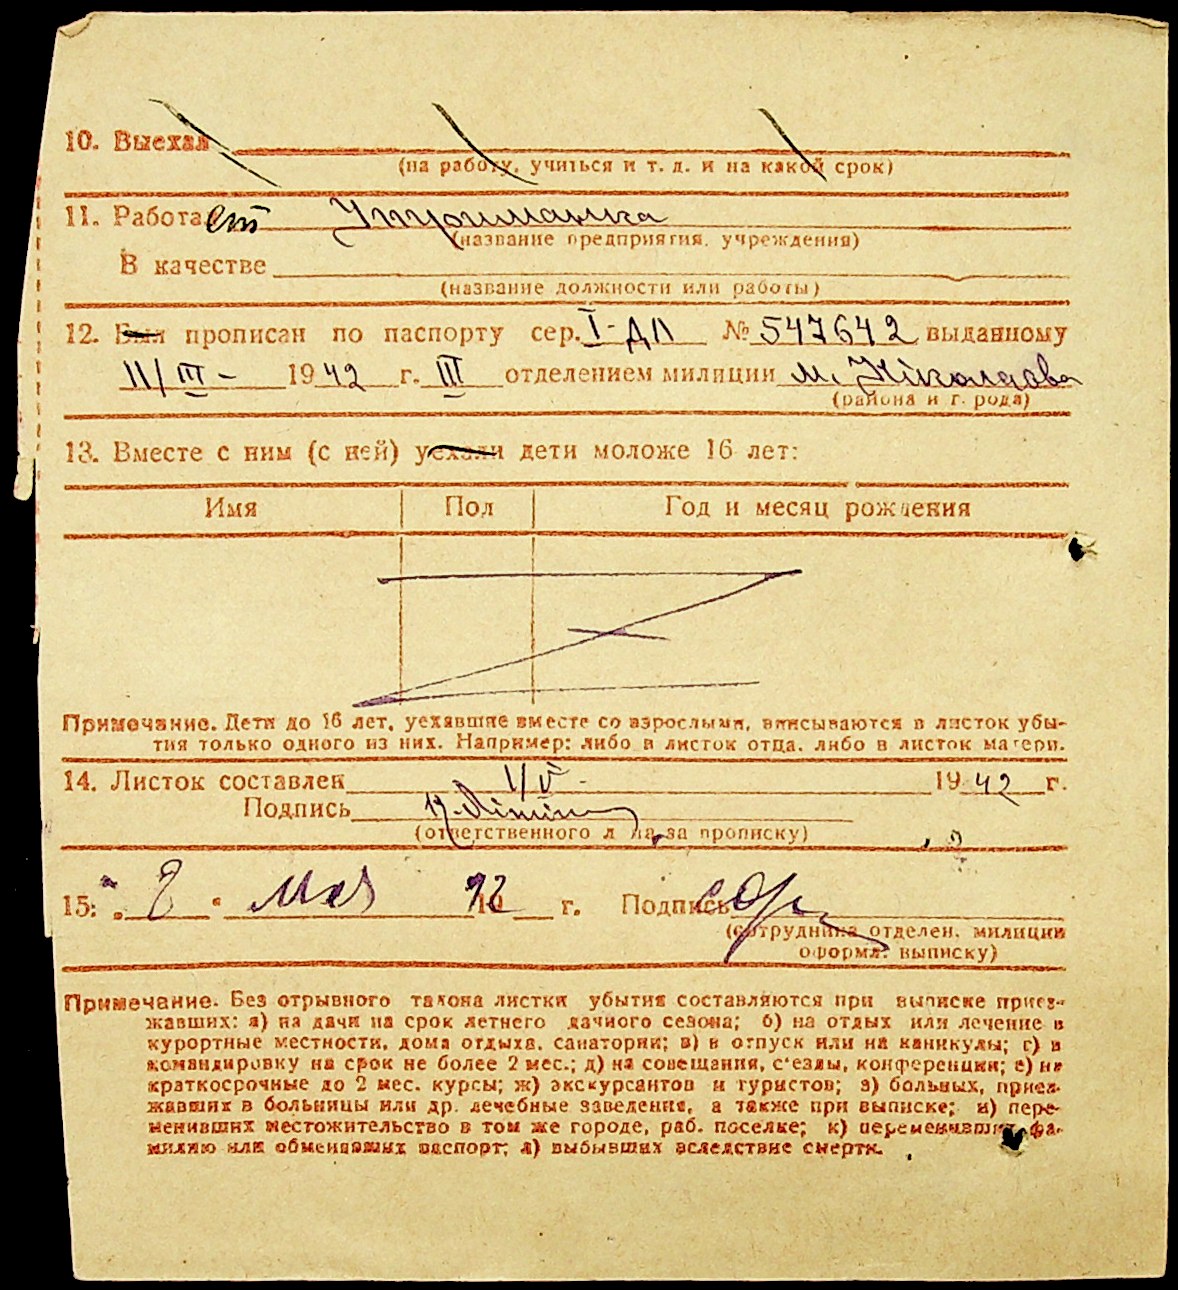 10. Выехал
(на работу, учиться и т. д. и на какой срок)
11. Работа
(название предприятия, учреждения)
В качестве
(название должности или работы)
12. Был прописан по паспорту сер. I-ДЛ № 547642 выданному
11/III - 1942 г. III отделением милиции м. Ніколаєва
(района и города)
13. Вместе с ним (с ней) уехали дети моложе 16 лет:
Имя Пол Год и месяц рождения
Примечание. Дети до 16 лет, уехавшие вместе со взрослыми, вписываются в листок убы-
тия только одного из них. Например: либо в листок отца, либо в листок матери.
14. Листок составлен 1/V - 1942 г.
Подпись
(ответственного л за прописку)
15: 8 Мая 42 19 г. Подпись
(сотрудника отделен. милиции
оформл. выписку)
Примечание. Без отрывного талона листки убытия составляются при выписке приез-
жавших: а) на дачи на срок летнего дачного сезона; б) на отдых или лечение в
курортные местности, дома отдыха, санатории; в) в отпуск или на каникулы; г) в
командировку на срок не более 2 мес.; д) на совещания, с'езды, конференции; е) на
краткосрочные до 2 мес. курсы; ж) экскурсантов и туристов; з) больных, приез-
жавших в больницы или др. лечебные заведения, а также при выписке; и) пере-
менивших местожительство в том же городе, раб. поселке; к) переменивших фа-
милию или обменявших паспорт; л) выбывших вследствие смерти.